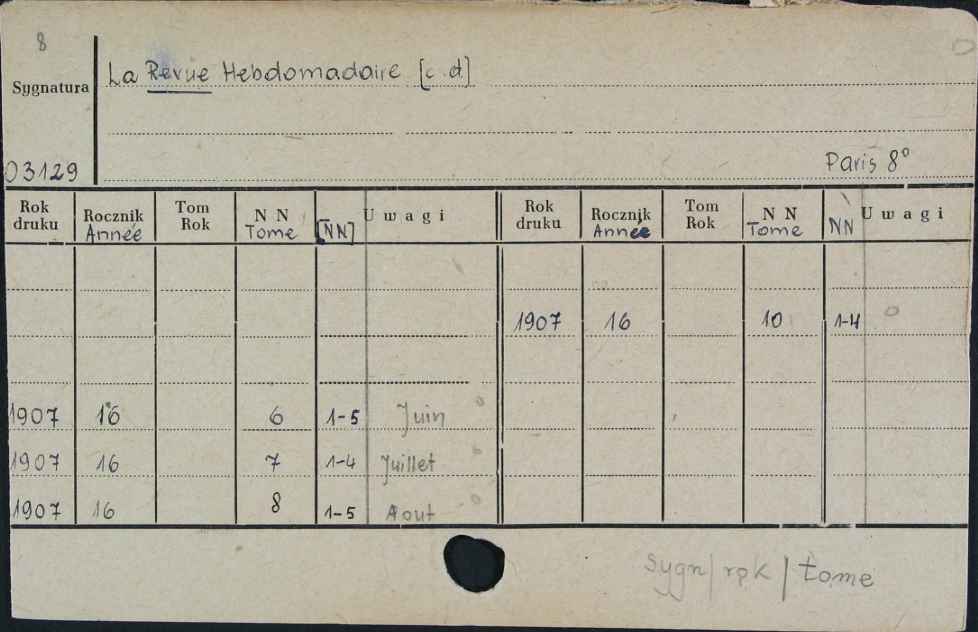 8
La Revue Hebdomadaire [c.d.]
Sygnatura
03129
Paris 8°
Rok druku Rocznik Année Tom Rok N N Tome [NN] Uwagi Rok druku Rocznik Année Tom Rok N N Tome NN Uwagi
1907 16 10 1-4
1907 16 6 1-5 Juin
1907 16 7 1-4 Juillet
1907 16 8 1-5 Aout
sygn/rpk/tome